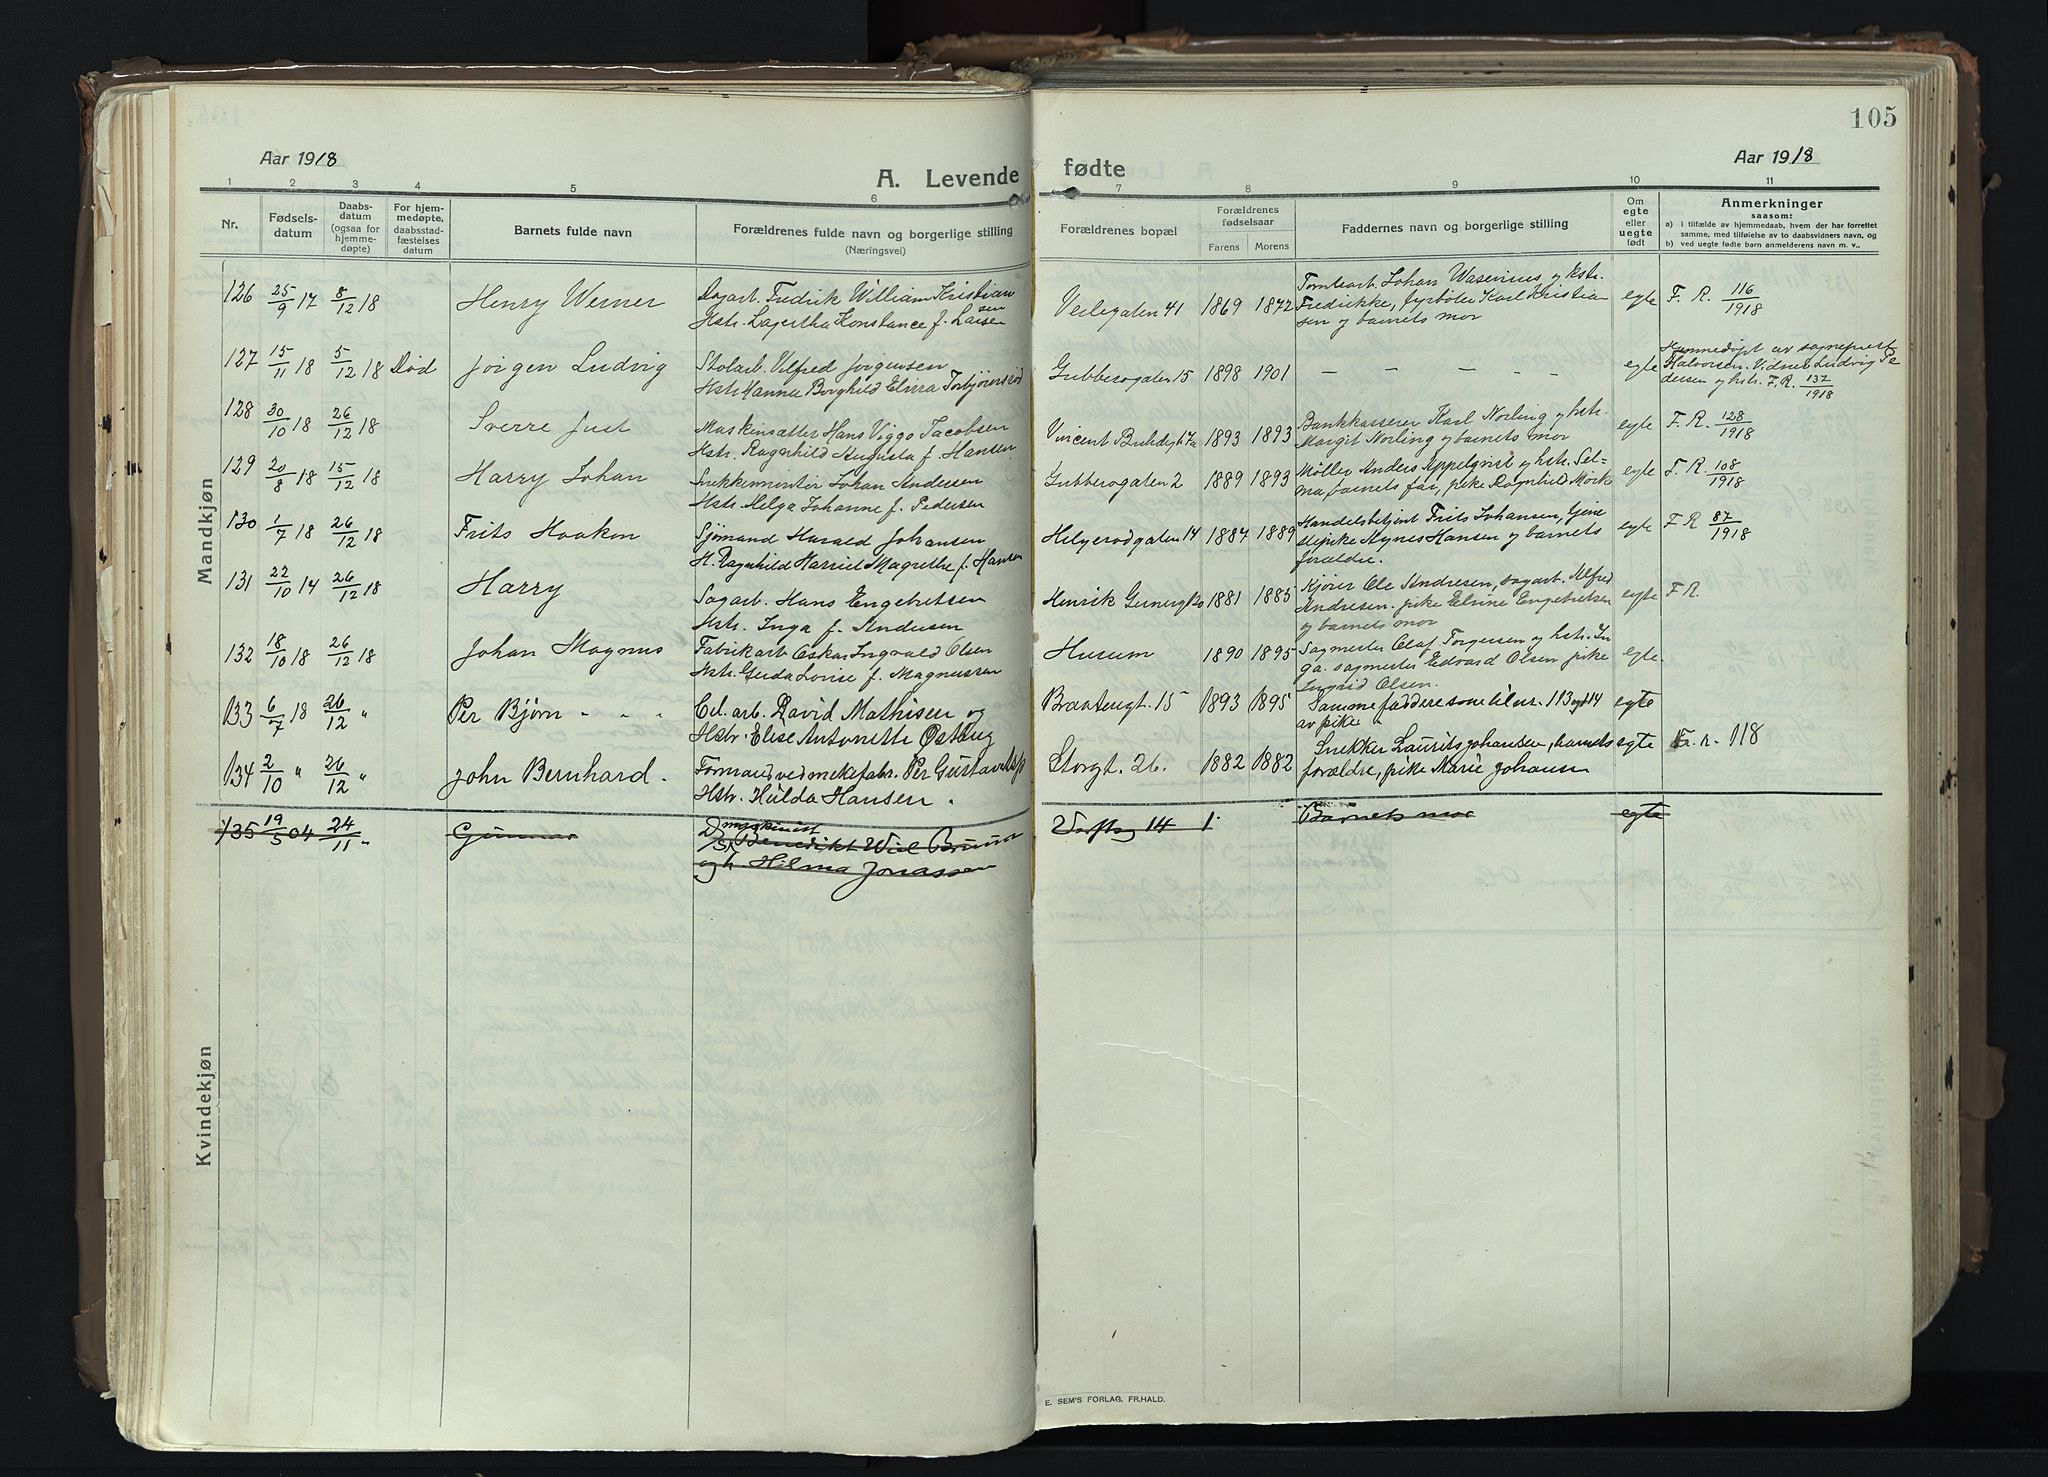 105
Aar 1918
A. Levende
fødte
Aar 1918
1 2 3 4 5 6 7 8 9 10 11
Nr.
Fødsels-
datum
Daabs-
datum
(ogsaa for
hjemme-
døpte)
For hjem-
medøpte,
daabsstad-
fæstelses
datum
Barnets fulde navn
Forældrenes fulde navn og borgerlige stilling
(Næringsvei)
Forældrenes bopæl
Forældrenes
fødselsaar
Farens Morens
Faddernes navn og borgerlige stilling
Om
egte
eller
uegte
født
Anmerkninger
saasom:
a) i tilfælde av hjemmedaab, hvem der har forrettet
samme, med tilføielse av to daabsvidners navn, og
b) ved uegte fødte børn anmelderens navn m. v..
Mandkjøn
126 25/9 17 8/12 18 Henry Werner
Dagarb. Fredrik William Kristian
sen
Hstr. Lagertha Konstance f. Larsen
Veslegaten 41 1869 1872
Tomtearb. Johan Wasenius og hstr.
Fredrikke, fyrbøter Karl Kristian
sen og barnets mor
egte F. R. 116/1918
127 15/11 18 5/12 18 Død Jørgen Ludvig
Stolarb. Vilfred Jørgensen
Hstr. Hanna Borghild Elvira Torbjørnsrød
Gubberogaten 15 1898 1901 — — — — — —
egte
Hjemmedøpt av sogneprest
Halvorsen. Vidner Ludvig Pe
dersen og hstr. F. R. 137/1918
128 30/10 18 26/12 18 Sverre Just
Maskinsætter Hans Viggo Jacobsen
Hstr. Ragnhild Augusta f. Hansen
Vincent Buldsgt 7a 1893 1893
Bankkasserer Karl Norling og hstr.
Margit Norling og barnets mor
egte F. R. 128/1918
129 20/8 18 15/12 18 Harry Johan
Snekkermester Johan Andersen
Hstr. Helga Johanne f. Pedersen
Gubberogaten 2 1889 1893
Møller Anders Appelqvist og hstr. Sel-
ma, barnets far, pike Ragnhild Mørk
egte F. R. 108/1918
130 1/7 18 26/12 18 Frits Haakon
Sjømand Harald Johansen
H. Ragnhild Harriet Magrethe f. Hansen
Helgerødgaten 14 1884 1889
Handelsbetjent Frits Johansen, tjene
stepike Agnes Hansen og barnets
forældre.
egte F R 87/1918
131 22/10 14 26/12 18 Harry
Sagarb. Hans Engebretsen
Hstr. Inga f. Andersen
Henrik Gernersgt 20 1881 1885
Kjører Ole Andresen, sagarb. Alfred
Andresen. pike Elvine Engebretsen
og barnets mor
egte F R.
132 18/10 18 26/12 18 Johan Magnus
Fabrikarb Oskar Ingvald Olsen
Hstr. Gerda Lovise f. Magnussen
Husum 1890 1895
Sagmester Olaf Torgersen og hstr. In
ga. sagmester Edvard Olsen pike
Ingrid Olsen.
egte.
133 6/7 18 26/12 " Per Bjørn - - -
Cel. arb. David Mathisen og
Hstr. Elise Antonette Østbug
Braatengt. 15 1893 1895
Samme faddere som til nr. 113 og 114
av pike
egte
134 2/10 " 26/12 " John Bernhard.
Formand ved mekefabr. Per Gustavel
Hstr. Hulda Hansen.
Storgt. 26. 1882 1882
Snekker Laurits Johansen, barnets
forældre, pike Marie Johansen
egte F. r. 118
135 19/5 04 24/11 " Gunnar
maskinist
Benedikt Wiel Bruun
og h. Hilma Jonassen
Værftsg 14 1
Barnets mor
egte
Kvindekjøn
E. SEM'S FORLAG, FR.HALD.